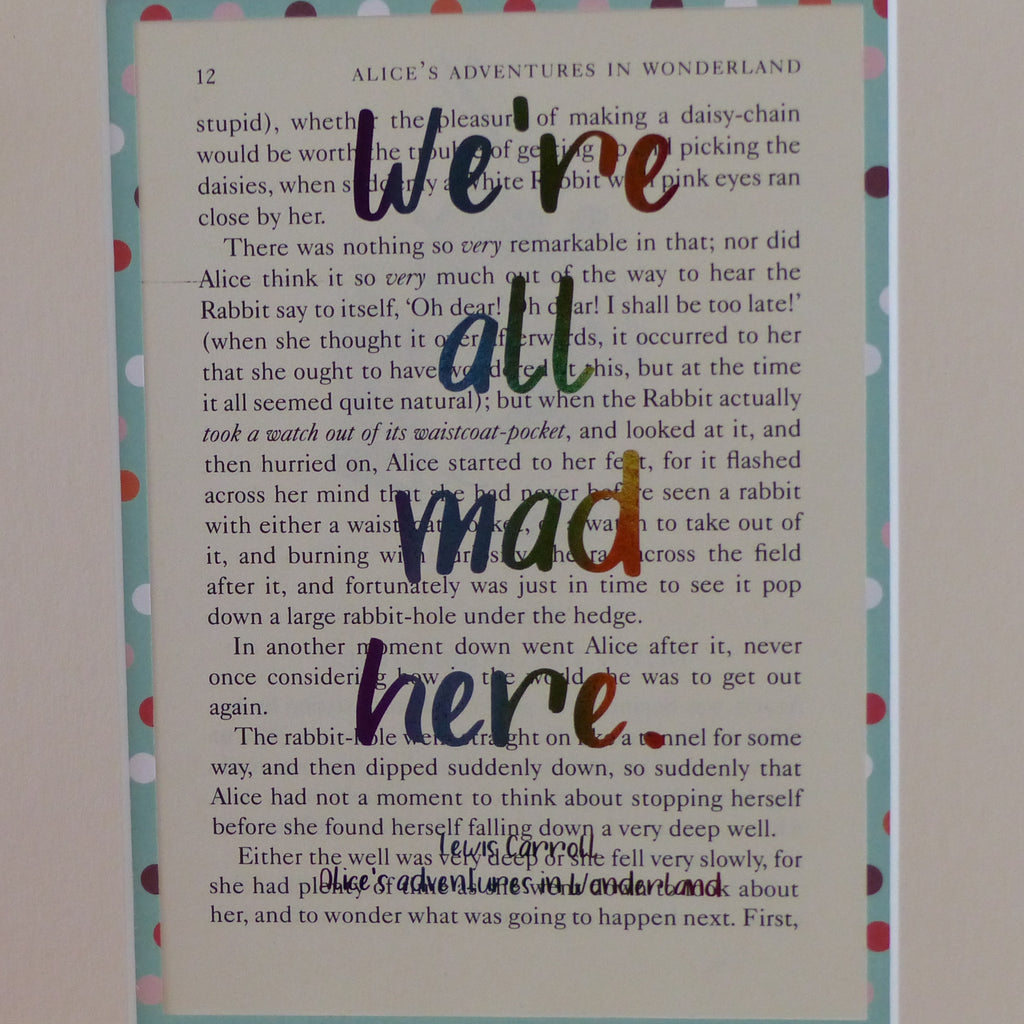 12 ALICE'S ADVENTURES IN WONDERLAND
stupid), whether the pleasure of making a daisy-chain
would be worth the trouble of getting up and picking the
daisies, when suddenly a White Rabbit with pink eyes ran
close by her.
There was nothing so very remarkable in that; nor did
Alice think it so very much out of the way to hear the
Rabbit say to itself, 'Oh dear! Oh dear! I shall be too late!'
(when she thought it over afterwards, it occurred to her
that she ought to have wondered at this, but at the time
it all seemed quite natural); but when the Rabbit actually
took a watch out of its waistcoat-pocket, and looked at it, and
then hurried on, Alice started to her feet, for it flashed
across her mind that she had never before seen a rabbit
with either a waistcoat-pocket, or a watch to take out of
it, and burning with curiosity, she ran across the field
after it, and fortunately was just in time to see it pop
down a large rabbit-hole under the hedge.
In another moment down went Alice after it, never
once considering how in the world she was to get out
again.
The rabbit-hole went straight on like a tunnel for some
way, and then dipped suddenly down, so suddenly that
Alice had not a moment to think about stopping herself
before she found herself falling down a very deep well.
Either the well was very deep or she fell very slowly, for
she had plenty of time as she went down to look about
her, and to wonder what was going to happen next. First,
We're
all
mad
here.
Lewis Carroll
Alice's adventures in Wonderland